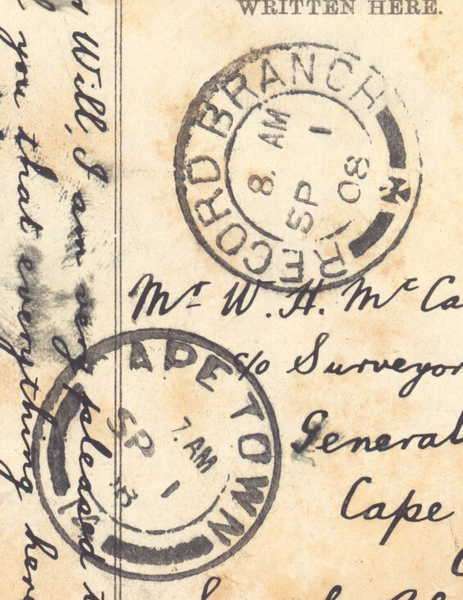 WRITTEN HERE.
RECORD BRANCH
8. AM
1
SP
08
Mr. W. H. Mc Ca
c/o Surveyor
General
Cape
CAPE TOWN
7. AM
SP 1
Will, I am very pleased t
you that everything here